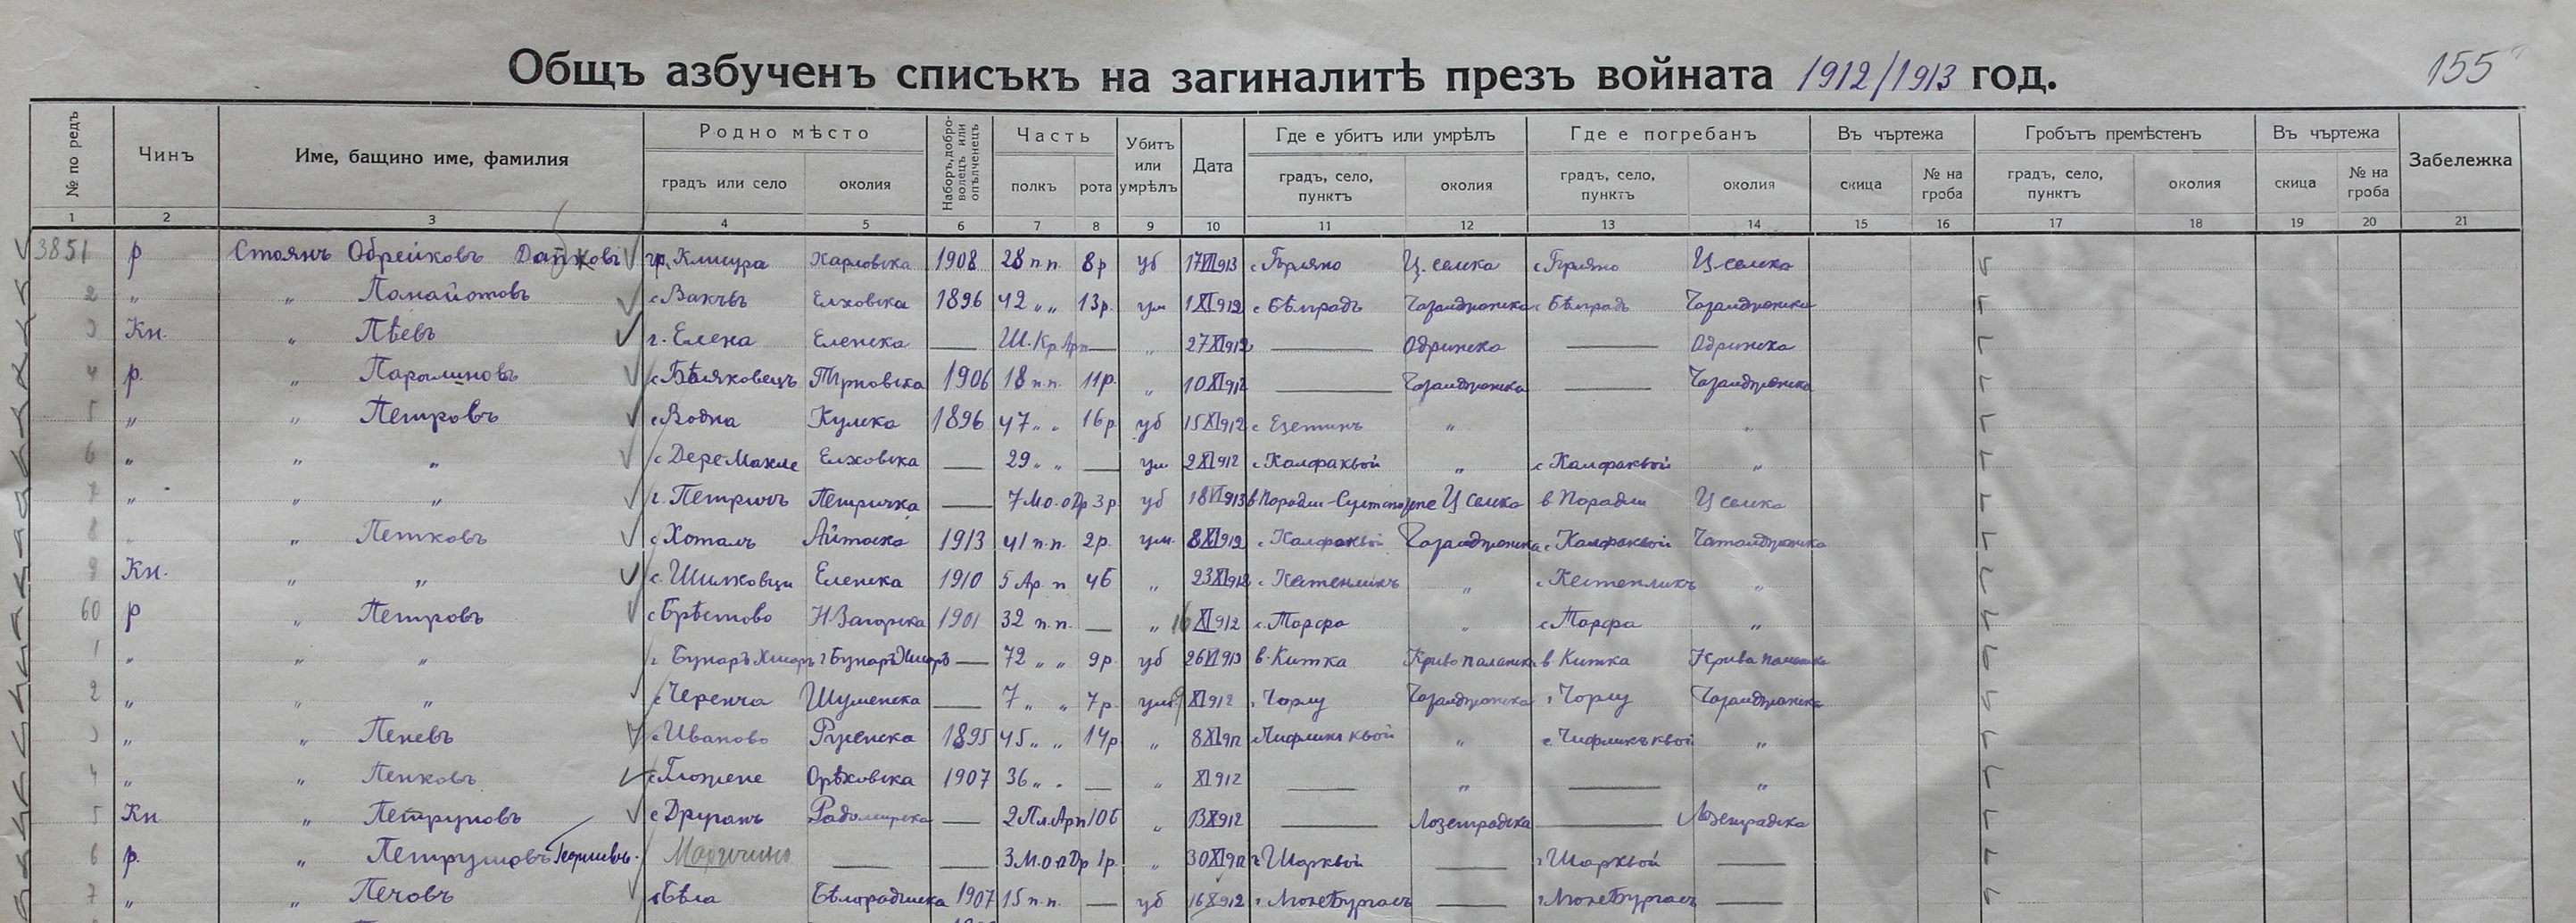 Общъ азбученъ списъкъ на загиналитѣ презъ войната 1912/1913 год.
155
№ по редъ Чинъ Име, бащино име, фамилия Родно мѣсто Наборъ, доброволецъ или опълченецъ Часть Убитъ или умрѣлъ Дата Где е убитъ или умрѣлъ Где е погребанъ Въ чъртежа Гробътъ премѣстенъ Въ чъртежа Забележка
градъ или село околия полкъ рота градъ, село, пунктъ околия градъ, село, пунктъ околия скица № на гроба градъ, село, пунктъ околия скица № на гроба
1 2 3 4 5 6 7 8 9 10 11 12 13 14 15 16 17 18 19 20 21
3851 р Стоянъ Обрейковъ гр. Клисура Карловска 1908 28 п.п. 8 р уб 17 VI 913 Ц. селска Ц. селска
2 „ „ Панайотовъ с Вакъвъ Елховска 1896 42 „ „ 13 р. ум 1 XI 912 с Бѣлградъ Чаталджанска с Бѣлградъ Чаталджанска
3 Кн. „ Пѣевъ г. Елена Еленска — Ш. Кр. Арп — „ 27 XI 912 — Одринска — Одринска
4 р. „ с Бѣляковецъ Търновска 1906 18 п.п. 11 р. „ 10 XI 912 — Чаталджанска — Чаталджанска
5 „ „ Петровъ с Водна Кулска 1896 47 „ „ 16 р уб 15 XI 912 с Езетинъ „ „
6 „ „ „ с Дере Махле Елховска — 29 „ „ — ум 2 XI 912 с Калфакьой „ с Калфакьой „
7 „ „ „ г. Петричъ Петричка — 7 М.о.о Др 3 р уб 18 VI 913 Ц селска в Порадли Ц селска
8 „ „ Петковъ с Айтоска 1913 41 п.п. 2 р. ум. 8 XI 912 с Калфакьой Чаталджанска с Калфакьой Чаталджанска
9 Кн. „ „ с. Шилковци Еленска 1910 5 Ар. п 4 б „ 23 XI 912 с Кестенликъ „ с Кестенликъ „
60 р „ Петровъ с Брѣстово Н Загорска 1901 32 п.п. — „ 16 XI 912 с. Тарфа „ с Тарфа „
1 „ „ „ г Бунаръ Хисаръ г Бунаръ Хисаръ — 72 „ „ 9 р. уб 26 VI 913 в. Китка Криво паланска в. Китка Крива паланска
2 „ „ „ с Черенча Шуменска — 7 „ „ 7 р. ум 9 XI 912 г Чорлу Чаталджанска г Чорлу Чаталджанска
3 „ „ Пеневъ с Иваново Русенска 1895 45 „ „ 14 р „ 8 XI 912 с Чифликъ кьой „ с. Чифликъ кьой „
4 „ „ Пенковъ с Гложене Орѣховска 1907 36 „ „ — „ XI 912 — „ — „
5 Кн „ Петруновъ с Друганъ Радомирска — 2 Пл. Арп 10 б „ 13 X 912 — Лозенградска — Лозенградска
6 р. „ Георгиевъ. — — 3 М.о.п Др 1 р. „ 30 XI 912 г Шаркьой — г Шаркьой —
7 „ „ Печовъ с Бѣла Бѣлоградчиска 1907 15 п.п. — уб 16 X 912 г Люле Бургасъ — г Люле Бургасъ —